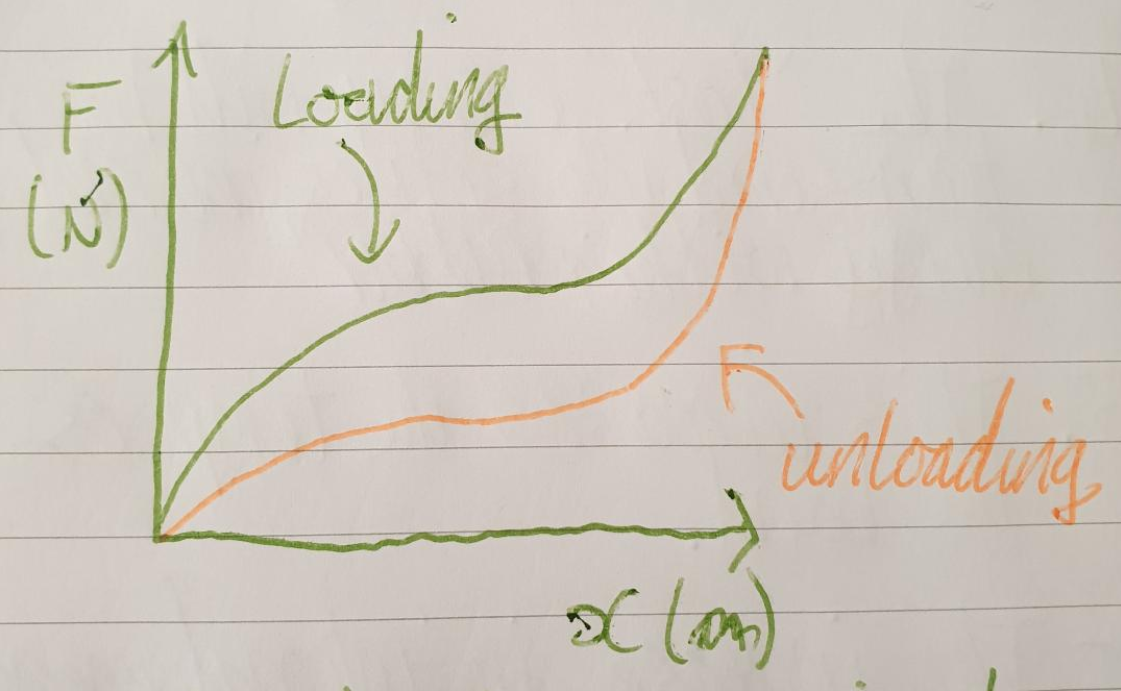 F
(N)
Loading
unloading
x (m)